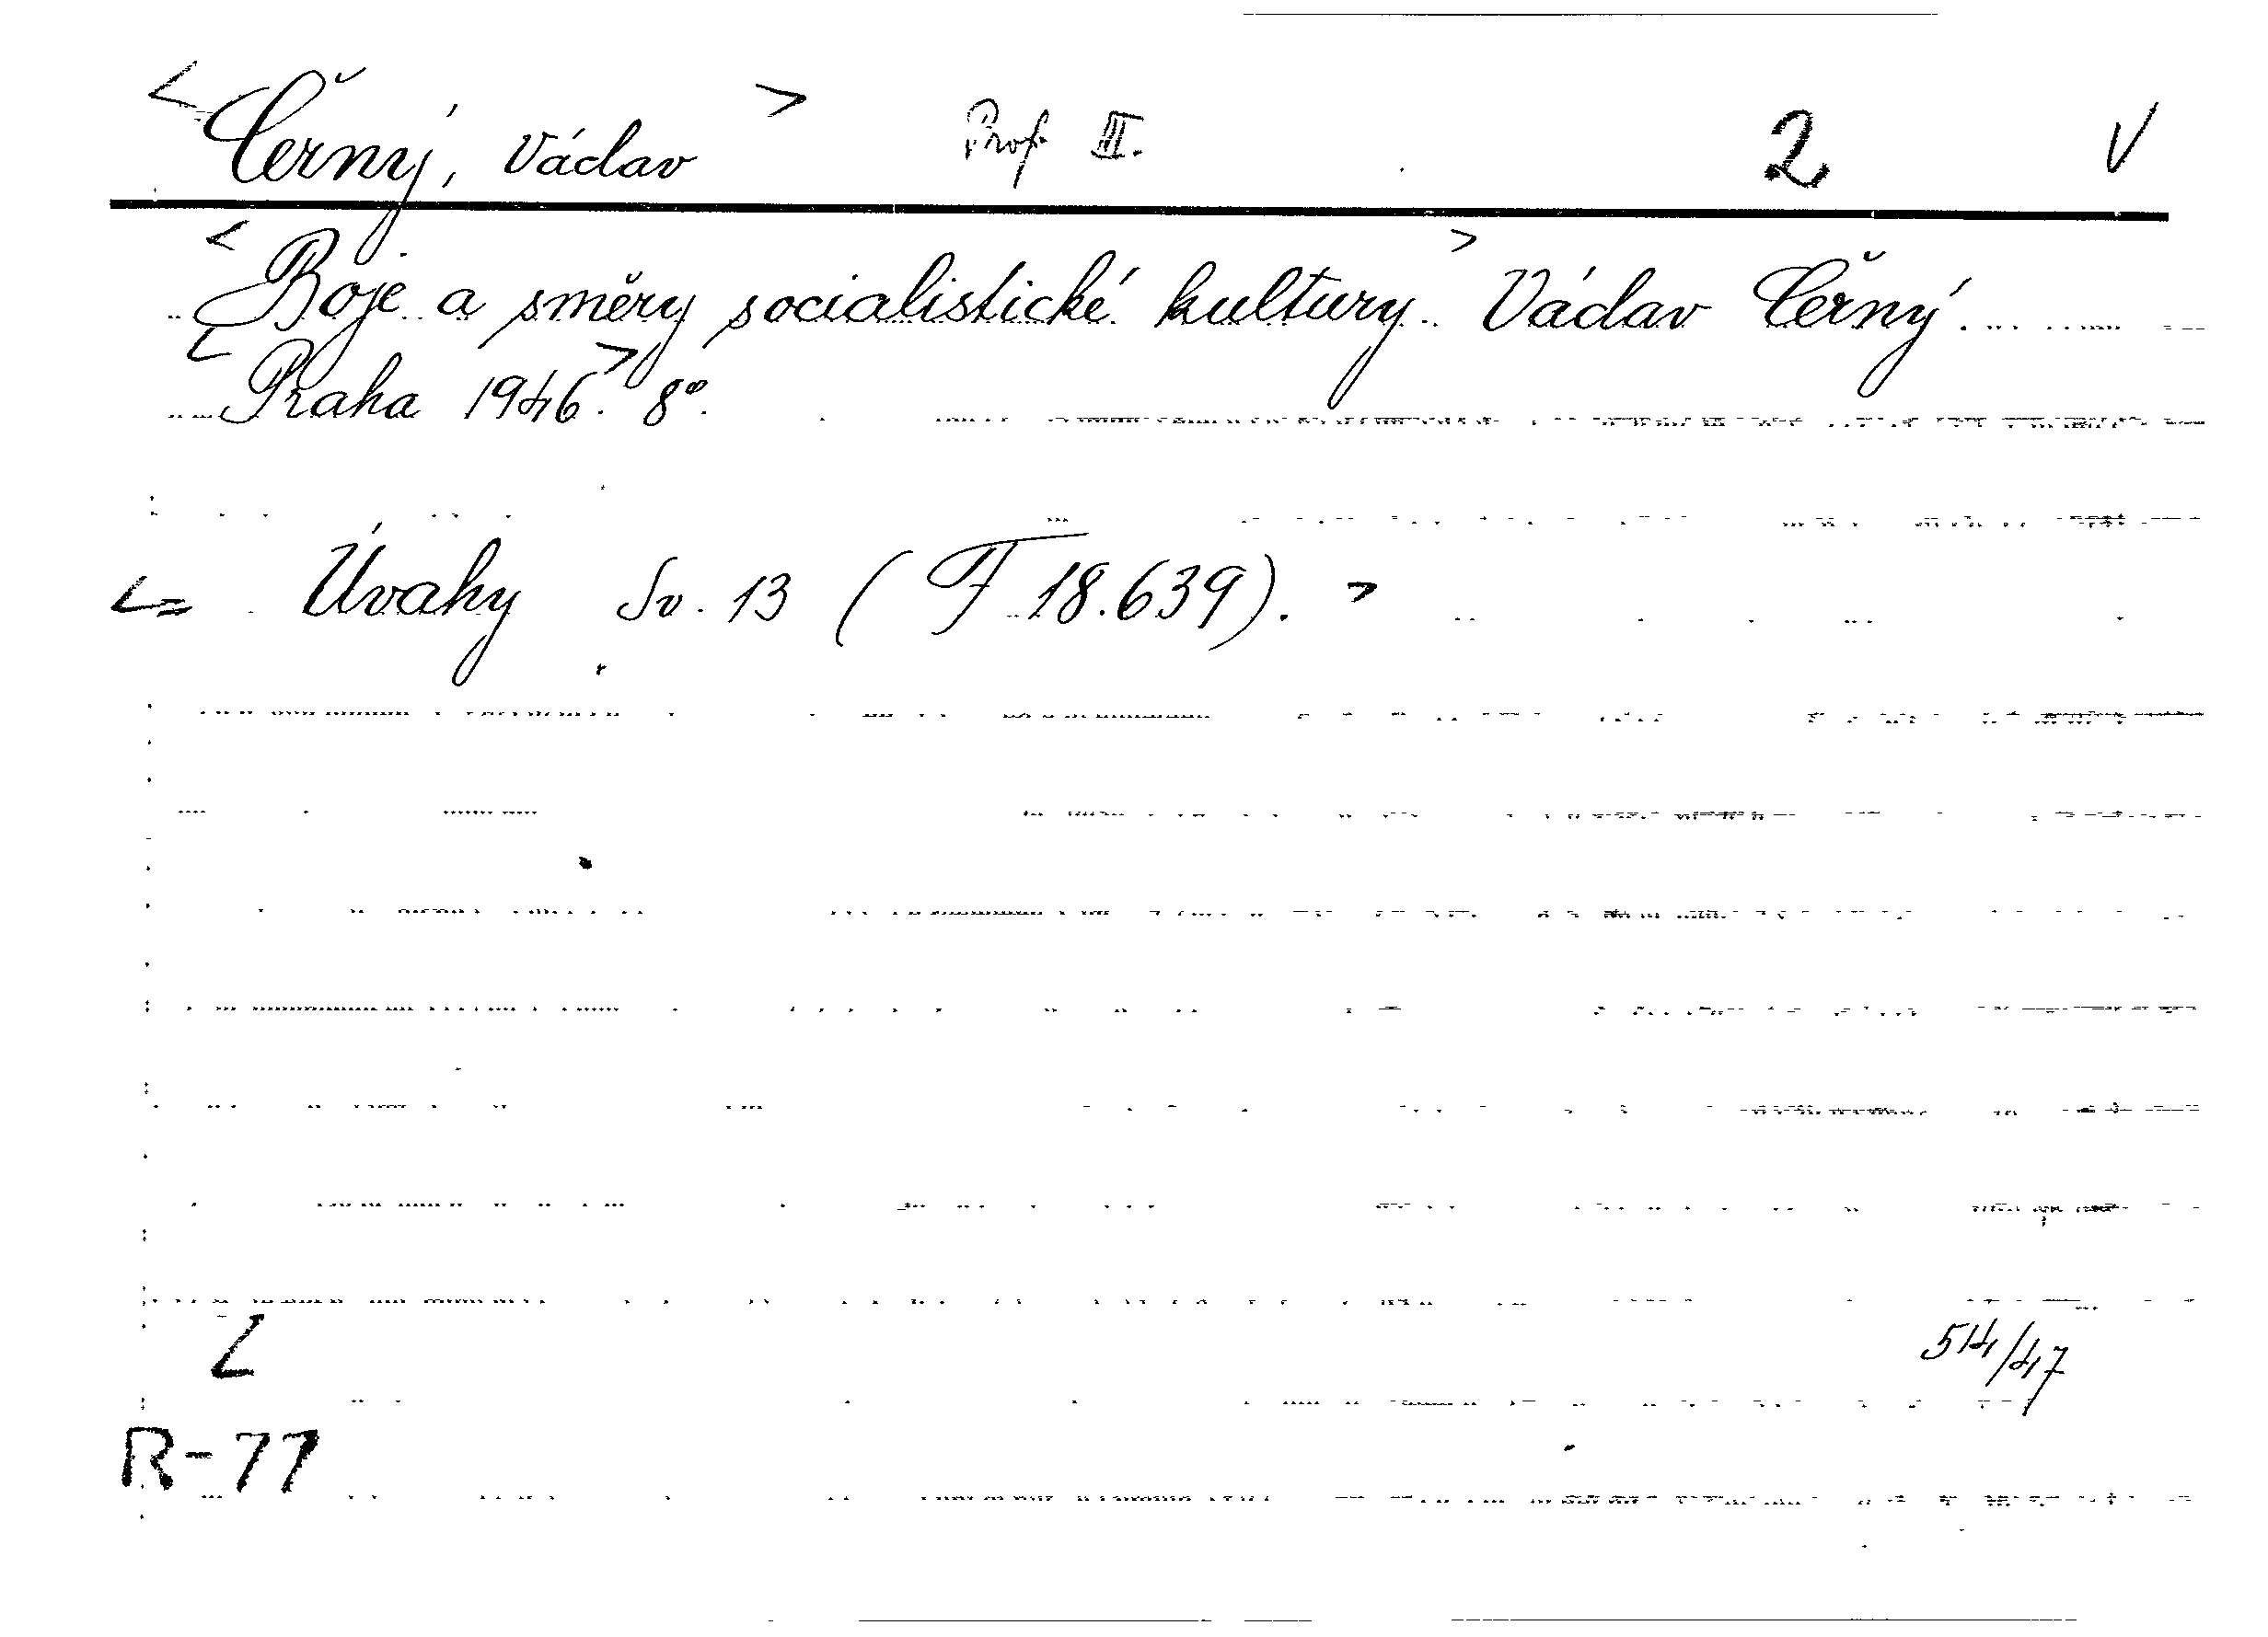 < Černý, Václav > Prof. III. 2 V
< Boje a směry socialistické kultury. > Václav Černý.
< Praha 1946. > 8°.
<= Úvahy Sv. 13 (F 18.639). >
L
514/47
R-77